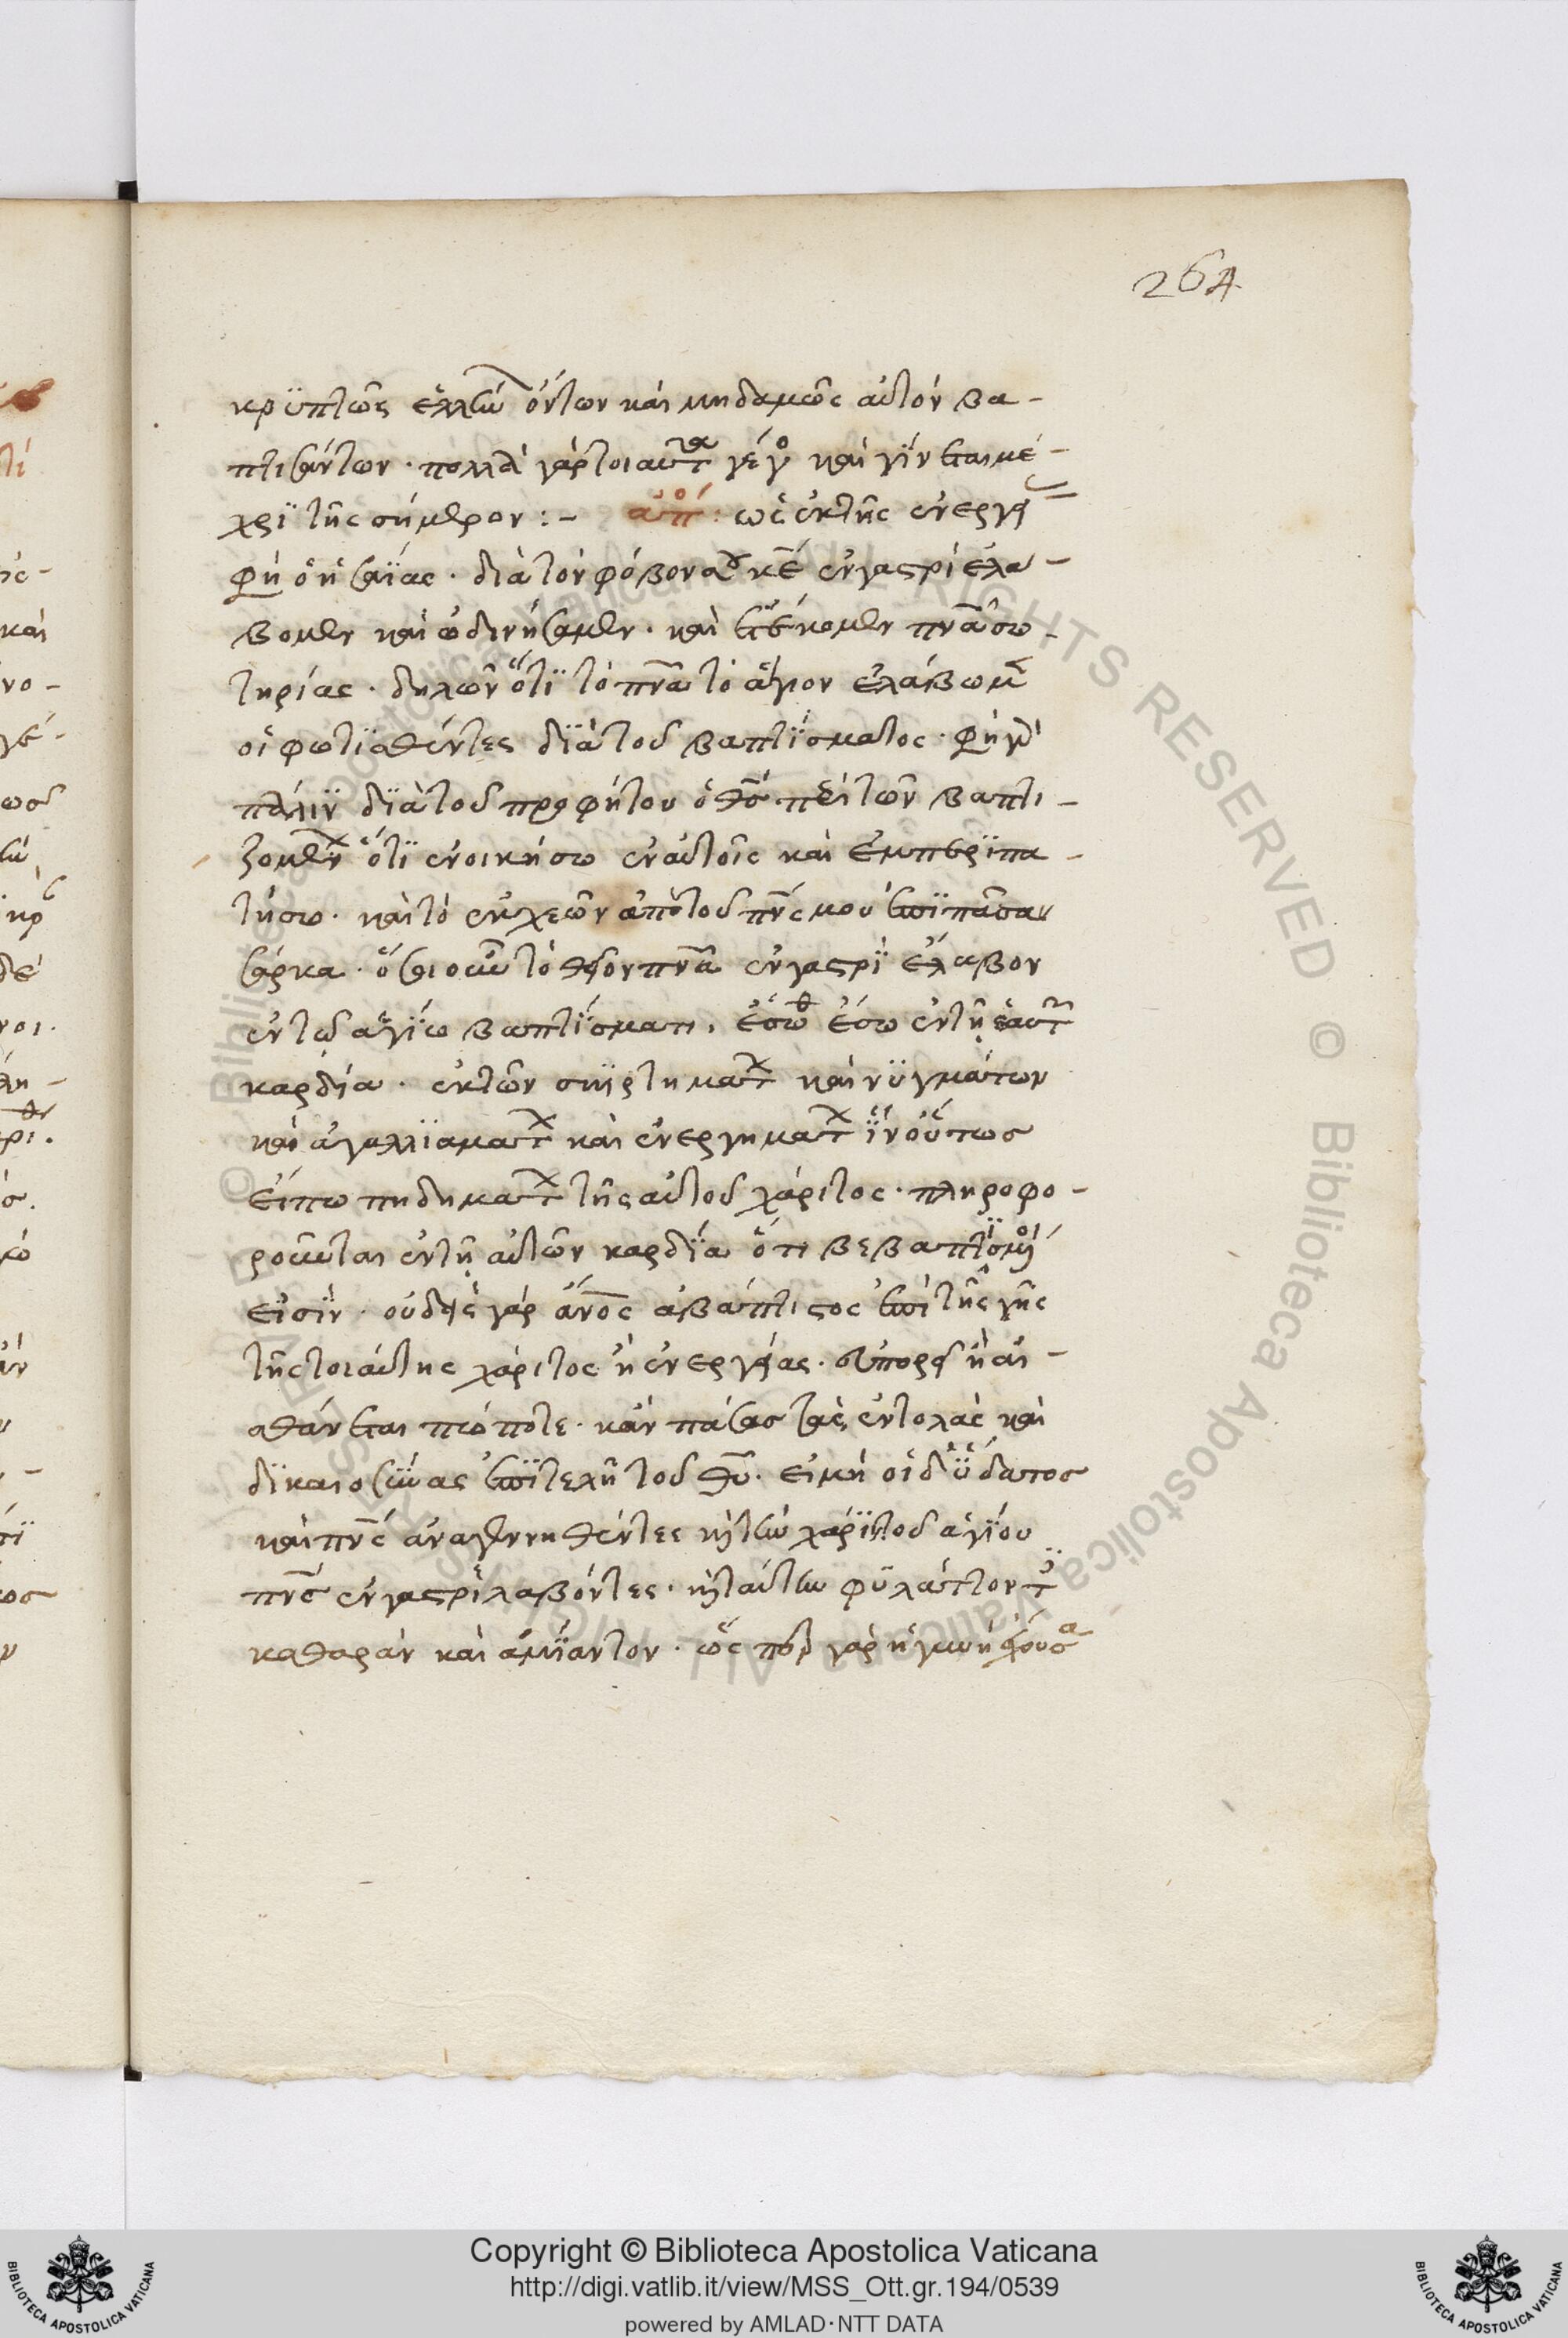 264
κρϋπτῶς ἑλλήν ὄντων καὶ μηδαμῶς αὐτὸν βα-
πτισάντων· πολλὰ γὰρ τοιαῦτα γέγο καὶ γίνεται μέ-
χρϊ τῆς σήμερον :- ἀπό: ὡς ἐκ τῆς ἐνεργεί
φὴ ὁ ἡσαΐας· διὰ τὸν φόβον σου κε ἐν γαστρὶ ἐλά-
βομεν καὶ ὠδινήσαμεν· καὶ ἐτέκομεν πνα σω-
τηρίας· δηλῶν ὅτϊ τὸ πνα τὸ ἅγιον ἐλάβωμ
οἱ φωτϊσθέντες δϊὰ τοῦ βαπτΐσματος· φὴ γὰρ
πάλιν δϊὰ τοῦ προφήτου ὁ θς περὶ τῶν βαπτι-
ζομένων ὅτϊ ἐνοικήσω ἐν αὐτοῖς καὶ ἐμπερϊπα-
τήσω· καὶ τὸ ἐκχεῶν ἀπὸ τοῦ πνς μου ἐπϊ πᾶσαν
σάρκα· ὅσοι οὖν τὸ θεῖον πνα ἐν γαστρϊ ἔλαβον
ἐν τῷ ἁγίω βαπτΐσματι, ἔσωθ ἔσω ἐν τῇ ἑαυτ
καρδία· ἐκ τῶν σκιρτημάτ καὶ νϋγμάτων
καὶ ἀγαλλϊαμάτ καὶ ἐνεργημάτ ΐν οὕτως
εἴπω πηδημάτ τῆς αὐτοῦ χάριτος· πληροφο-
ροῦνται ἐν τῇ αὐτῶν καρδΐα ὅτι βεβαπτϊσμοι
εἰσΐν· οὐδεὶς γὰρ ἄνος ἀβάπτιστος ἐπὶ τῆς γῆς
τῆς τοιαύτης χάριτος ἢ ἐνεργείας· εὐπορεῖ ἢ αἰ-
σθάνεται πώποτε· κἂν πάσας τὰς ἐντολὰς καὶ
δϊκαιοσύνας ἐπϊτελῆ τοῦ θυ· εἰ μὴ οἱ δϊ ὕδατος
καὶ πνς ἀναγεννηθέντες κ τὴν χάρϊν τοῦ ἁγΐου
πνς ἐν γαστρὶ λαβόντες· κ ταύτην φϋλάττοντ
καθαρὰν καὶ ἀμΐαντον· ὥς περ γὰρ ἡ γυνὴ φέρουσα
Copyright © Biblioteca Apostolica Vaticana
http://digi.vatlib.it/view/MSS_Ott.gr.194/0539
powered by AMLAD·NTT DATA